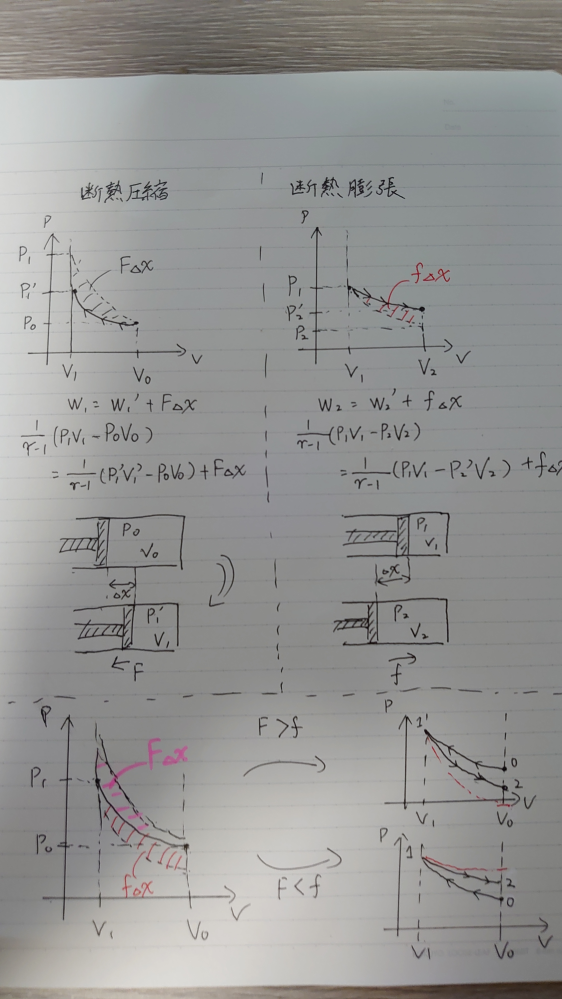 断熱圧縮
P
P₁
P₁'
P₀
FΔx
V₁
V₀
V
W₁ = W₁' + FΔx
1/(r-1) (P₁V₁ - P₀V₀)
= 1/(r-1) (P₁'V₁' - P₀V₀) + FΔx
P₀
V₀
Δx
P₁'
V₁
F
断熱膨張
P
P₁
P₂'
P₂
fΔx
V₁
V₂
V
W₂ = W₂' + fΔx
1/(r-1) (P₁V₁ - P₂V₂)
= 1/(r-1) (P₁V₁ - P₂'V₂) + fΔx
P₁
V₁
Δx
P₂
V₂
f
P
P₁
P₀
FΔx
fΔx
V₁
V₀
V
F > f
F < f
P
1
0
2
V₁
V₀
V
P
1
2
0
V₁
V₀
V